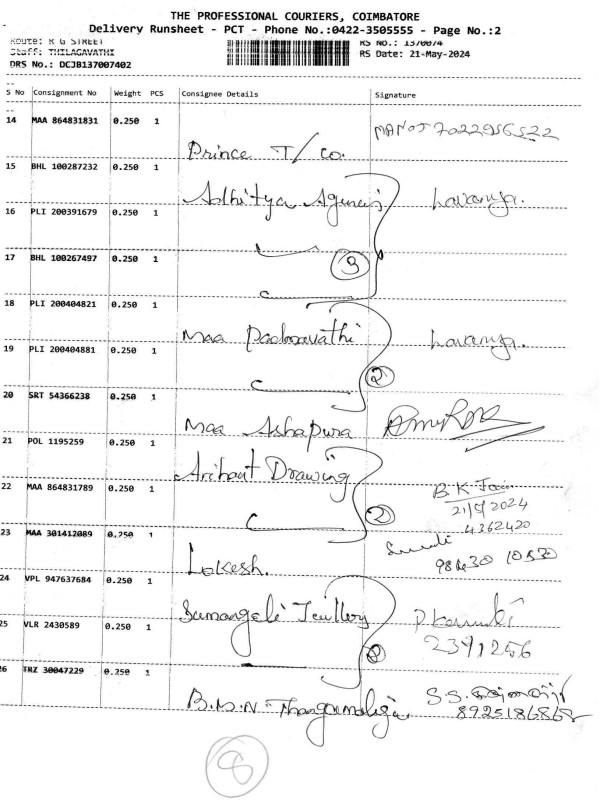 THE PROFESSIONAL COURIERS, COIMBATORE
Delivery Runsheet - PCT - Phone No.:0422-3505555 - Page No.:2
Route: R G STREET
RS No.: 1370074
Staff: THILAGAVATHI
RS Date: 21-May-2024
DRS No.: DCJB137007402
S No Consignment No Weight PCS Consignee Details Signature
14 MAA 864831831 0.250 1 Prince T/Co. MANOJ 7022956522
15 BHL 100287232 0.250 1 Adhitya Agencis Lavanya.
16 PLI 200391679 0.250 1
17 BHL 100267497 0.250 1 3
18 PLI 200404821 0.250 1 Maa Padmavathi Lavanya.
19 PLI 200404881 0.250 1 2
20 SRT 54366238 0.250 1 Maa Ashapura
21 POL 1195259 0.250 1 Arihant Drawing
22 MAA 864831789 0.250 1 2 B.K Jain
21/5/2024
4362420
23 MAA 301412089 0.250 1 Lokesh. 98430 10530
24 VPL 947637684 0.250 1 Sumangali Jewllery
25 VLR 2430589 0.250 1 2391256
26 TRZ 30047229 0.250 1 B.M.N. Thangamaliga S.S.
8925186868
8